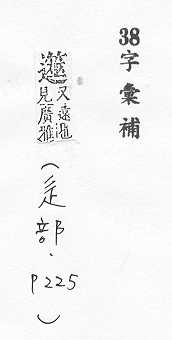 38字彙補
又遠
見廣雅
(辵部.P225)